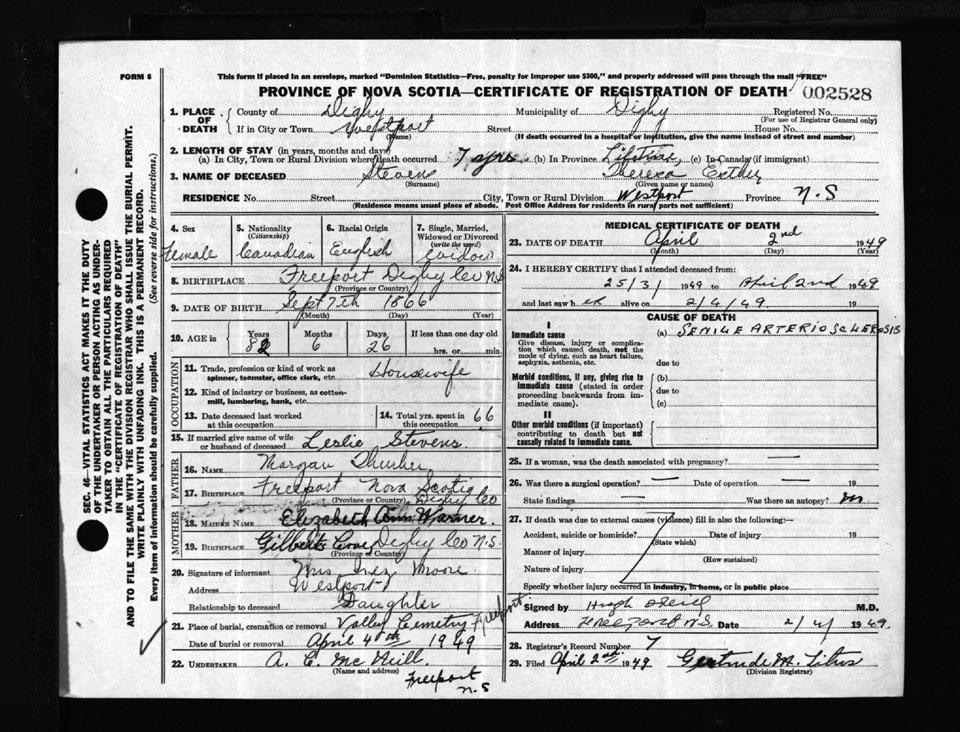 FORM 6
This form if placed in an envelope, marked "Dominion Statistics—Free, penalty for improper use $300," and properly addressed will pass through the mail "FREE"
PROVINCE OF NOVA SCOTIA—CERTIFICATE OF REGISTRATION OF DEATH 002528
SEC. 46—VITAL STATISTICS ACT MAKES IT THE DUTY
OF THE UNDERTAKER OR PERSON ACTING AS UNDER-
TAKER TO OBTAIN ALL THE PARTICULARS REQUIRED
IN THE "CERTIFICATE OF REGISTRATION OF DEATH"
AND TO FILE THE SAME WITH THE DIVISION REGISTRAR WHO SHALL ISSUE THE BURIAL PERMIT.
WRITE PLAINLY WITH UNFADING INK. THIS IS A PERMANENT RECORD.
Every item of information should be carefully supplied. (See reverse side for instructions.)
1. PLACE OF DEATH County of Digby Municipality of Digby Registered No.
(For use of Registrar General only)
If in City or Town Westport Street House No.
(Name) (If death occurred in a hospital or institution, give the name instead of street and number)
2. LENGTH OF STAY (in years, months and days)
(a) In City, Town or Rural Division where death occurred 7 yrs (b) In Province Lifetime (c) In Canada (if immigrant)
3. NAME OF DECEASED Stevens Theresa Esther
(Surname) (Given name or names)
RESIDENCE No. Street City, Town or Rural Division Westport Province N.S
(Residence means usual place of abode. Post Office Address for residents in rural parts not sufficient)
4. Sex 5. Nationality (Citizenship) 6. Racial Origin 7. Single, Married, Widowed or Divorced (write the word)
Female Canadian English Widow
8. BIRTHPLACE Freeport Digby Co N.S
(Province or Country)
9. DATE OF BIRTH Sept 7th 1866
(Month) (Day) (Year)
10. AGE in Years Months Days If less than one day old
82 6 26 hrs. or min.
OCCUPATION
11. Trade, profession or kind of work as spinner, teamster, office clerk, etc. Housewife
12. Kind of industry or business, as cotton-mill, lumbering, bank, etc.
13. Date deceased last worked at this occupation 14. Total yrs. spent in this occupation 66
15. If married give name of wife or husband of deceased Leslie Stevens
FATHER
16. NAME Morgan Thurber
17. BIRTHPLACE Freeport Nova Scotia
(Province or Country) Digby Co
MOTHER
18. MAIDEN NAME Elizabeth Ann Warner.
19. BIRTHPLACE Gilberts Cove Digby Co N.S.
(Province or Country)
20. Signature of informant Mrs Inez Moore
Address Westport
Relationship to deceased Daughter
21. Place of burial, cremation or removal Valley Cemetry Freeport
Date of burial or removal April 4th 1949
22. UNDERTAKER A. E. McNeill.
(Name and address) Freeport
N.S
MEDICAL CERTIFICATE OF DEATH
23. DATE OF DEATH April 2nd 1949
(Month) (Day) (Year)
24. I HEREBY CERTIFY that I attended deceased from:
25/3/ 1949 to April 2nd 1949
and last saw her alive on 2/4/49. 19
CAUSE OF DEATH
I
Immediate cause (a) SENILE ARTERIOSCLEROSIS
Give disease, injury or complication which caused death, not the mode of dying, such as heart failure, asphyxia, asthenia, etc. due to
Morbid conditions, if any, giving rise to immediate cause (stated in order proceeding backwards from immediate cause). (b)
due to
(c)
II
Other morbid conditions (if important) contributing to death but not causally related to immediate cause.
25. If a woman, was the death associated with pregnancy? —
26. Was there a surgical operation? — Date of operation — 19
State findings — Was there an autopsy?
27. If death was due to external causes (violence) fill in also the following:—
Accident, suicide or homicide? Date of injury 19
(State which)
Manner of injury
(How sustained)
Nature of injury
Specify whether injury occurred in industry, in home, or in public place
Signed by Hugh M.D.
Address FREEPORT N.S. Date 2/4/ 1949.
28. Registrar's Record Number 7
29. Filed April 2nd 1949 Gertrude M. Titus
(Division Registrar)